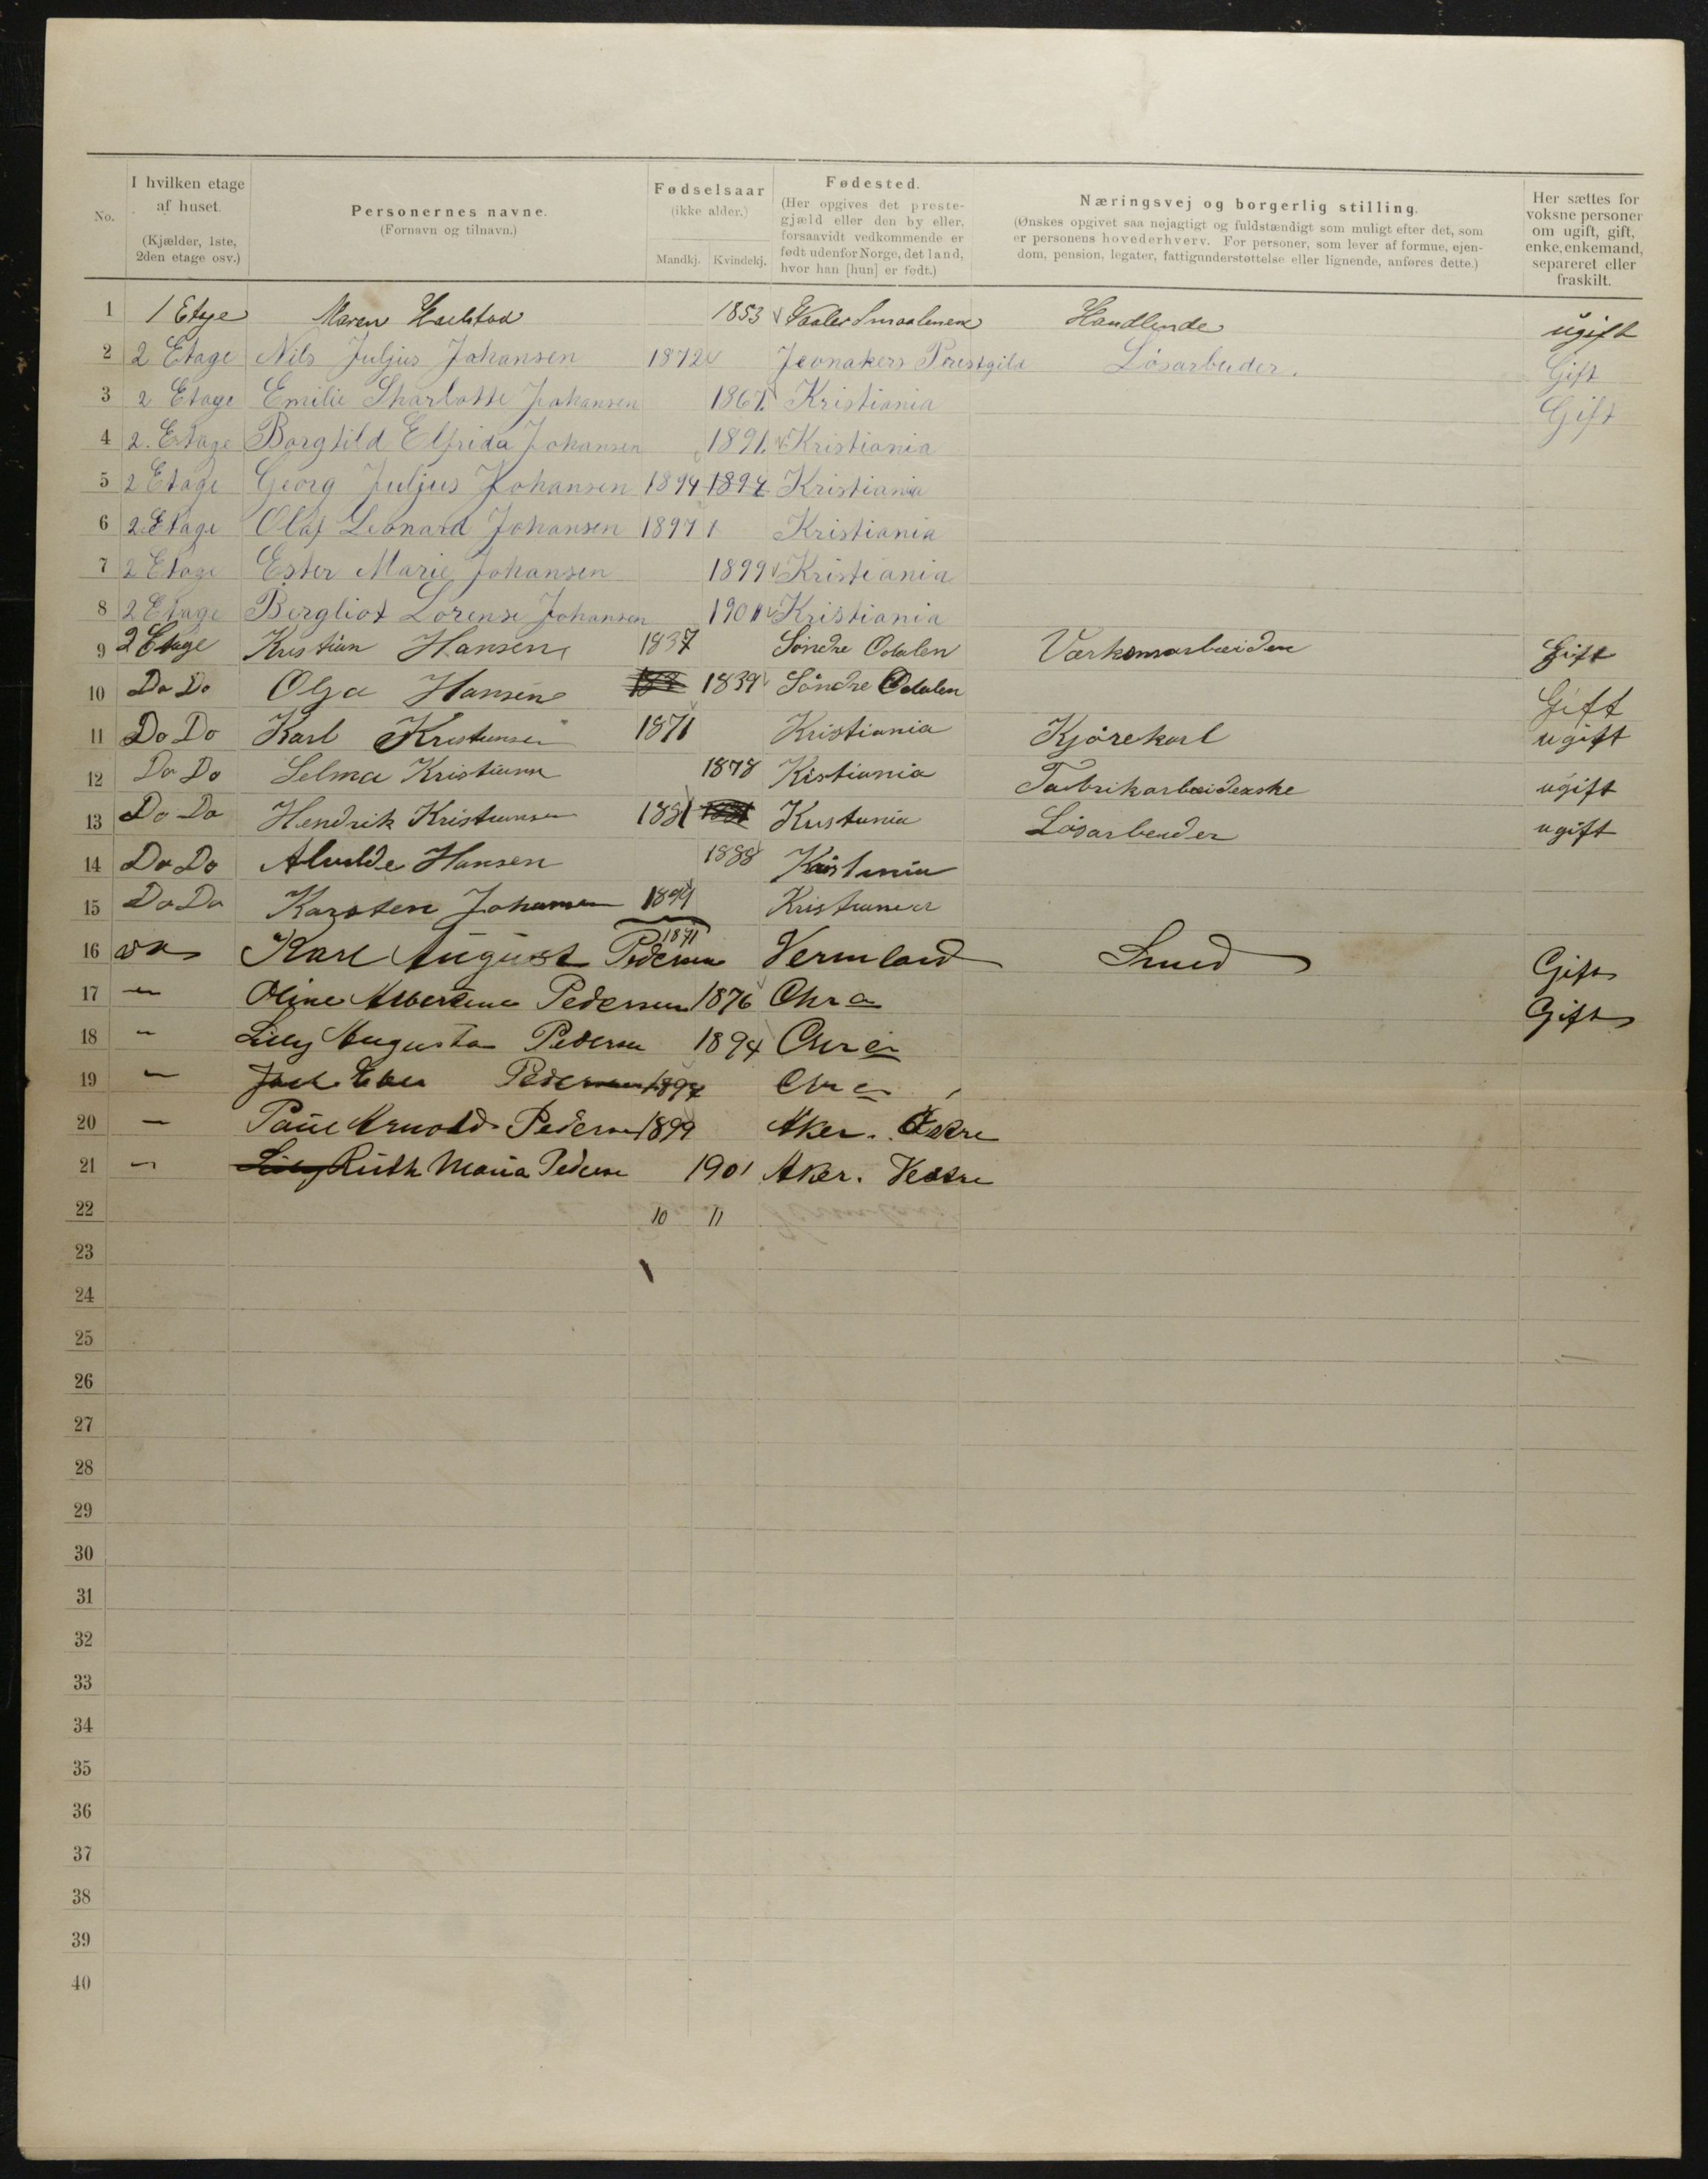 No.
I hvilken etage af huset.
(Kjælder, 1ste, 2den etage osv.)
Personernes navne.
(Fornavn og tilnavn.)
Fødselsaar
(ikke alder.)
Mandkj. Kvindekj.
Fødested.
(Her opgives det prestegjæld eller den by eller, forsaavidt vedkommende er født udenfor Norge, det land, hvor han [hun] er født.)
Næringsvej og borgerlig stilling.
(Ønskes opgivet saa nøjagtigt og fuldstændigt som muligt efter det, som er personens hovederhverv. For personer, som lever af formue, ejendom, pension, legater, fattigunderstøttelse eller lignende, anføres dette.)
Her sættes for voksne personer om ugift, gift, enke, enkemand, separeret eller fraskilt.
1 1 Etge Maren 1853 Vaaler Smaalenene Handlende ugift
2 2 Etage Nils Juljus Johansen 1872 Jevnakers Prestgild Løsarbeider. Gift
3 2 Etage Emilie Sharlotte Johansen 1867 Kristiania Gift
4 2. Etage Borghild Elfrida Johansen 1891 Kristiania
5 2 Etage Georg Juljus Johansen 1894 1894 Kristiania
6 2 Etage Olaf Leonard Johansen 1897 Kristiania
7 2 Etage Ester Marie Johansen 1899 Kristiania
8 2 Etage Bergliot Lorense Johansen 1901 Kristiania
9 2 Etage Kristian Hansen 1837 Søndre Odalen Værksarbeider Gift
10 Do Do Olga Hansen 1839 Søndre Odalen Gift
11 Do Do Karl Kristiansen 1871 Kristiania Kjørekarl ugift
12 Do Do Selma Kristiansen 1878 Kistiania Fabrikarbeiderske ugift
13 Do Do Hendrik Kristiansen 1881 Kristiania Løsarbeider ugift
14 Do Do Hansen 1888 Kristiania
15 Do Do Karsten Johansen 1899 Kristiania
16 Karl August Pedersen 1871 Vermland Smed Gift
17 — Oline Albertine Pedersen 1876 Chra Gift
18 — Lilly Augusta Pedersen 1894 Chra
19 — Pedersen 1897 Chra
20 — Paul Arnold Pedersen 1899 Aker. Østre
21 — Lilly Ruth Maria Pedersen 1901 Aker. Vestre
22 10 11
23
24
25
26
27
28
29
30
31
32
33
34
35
36
37
38
39
40